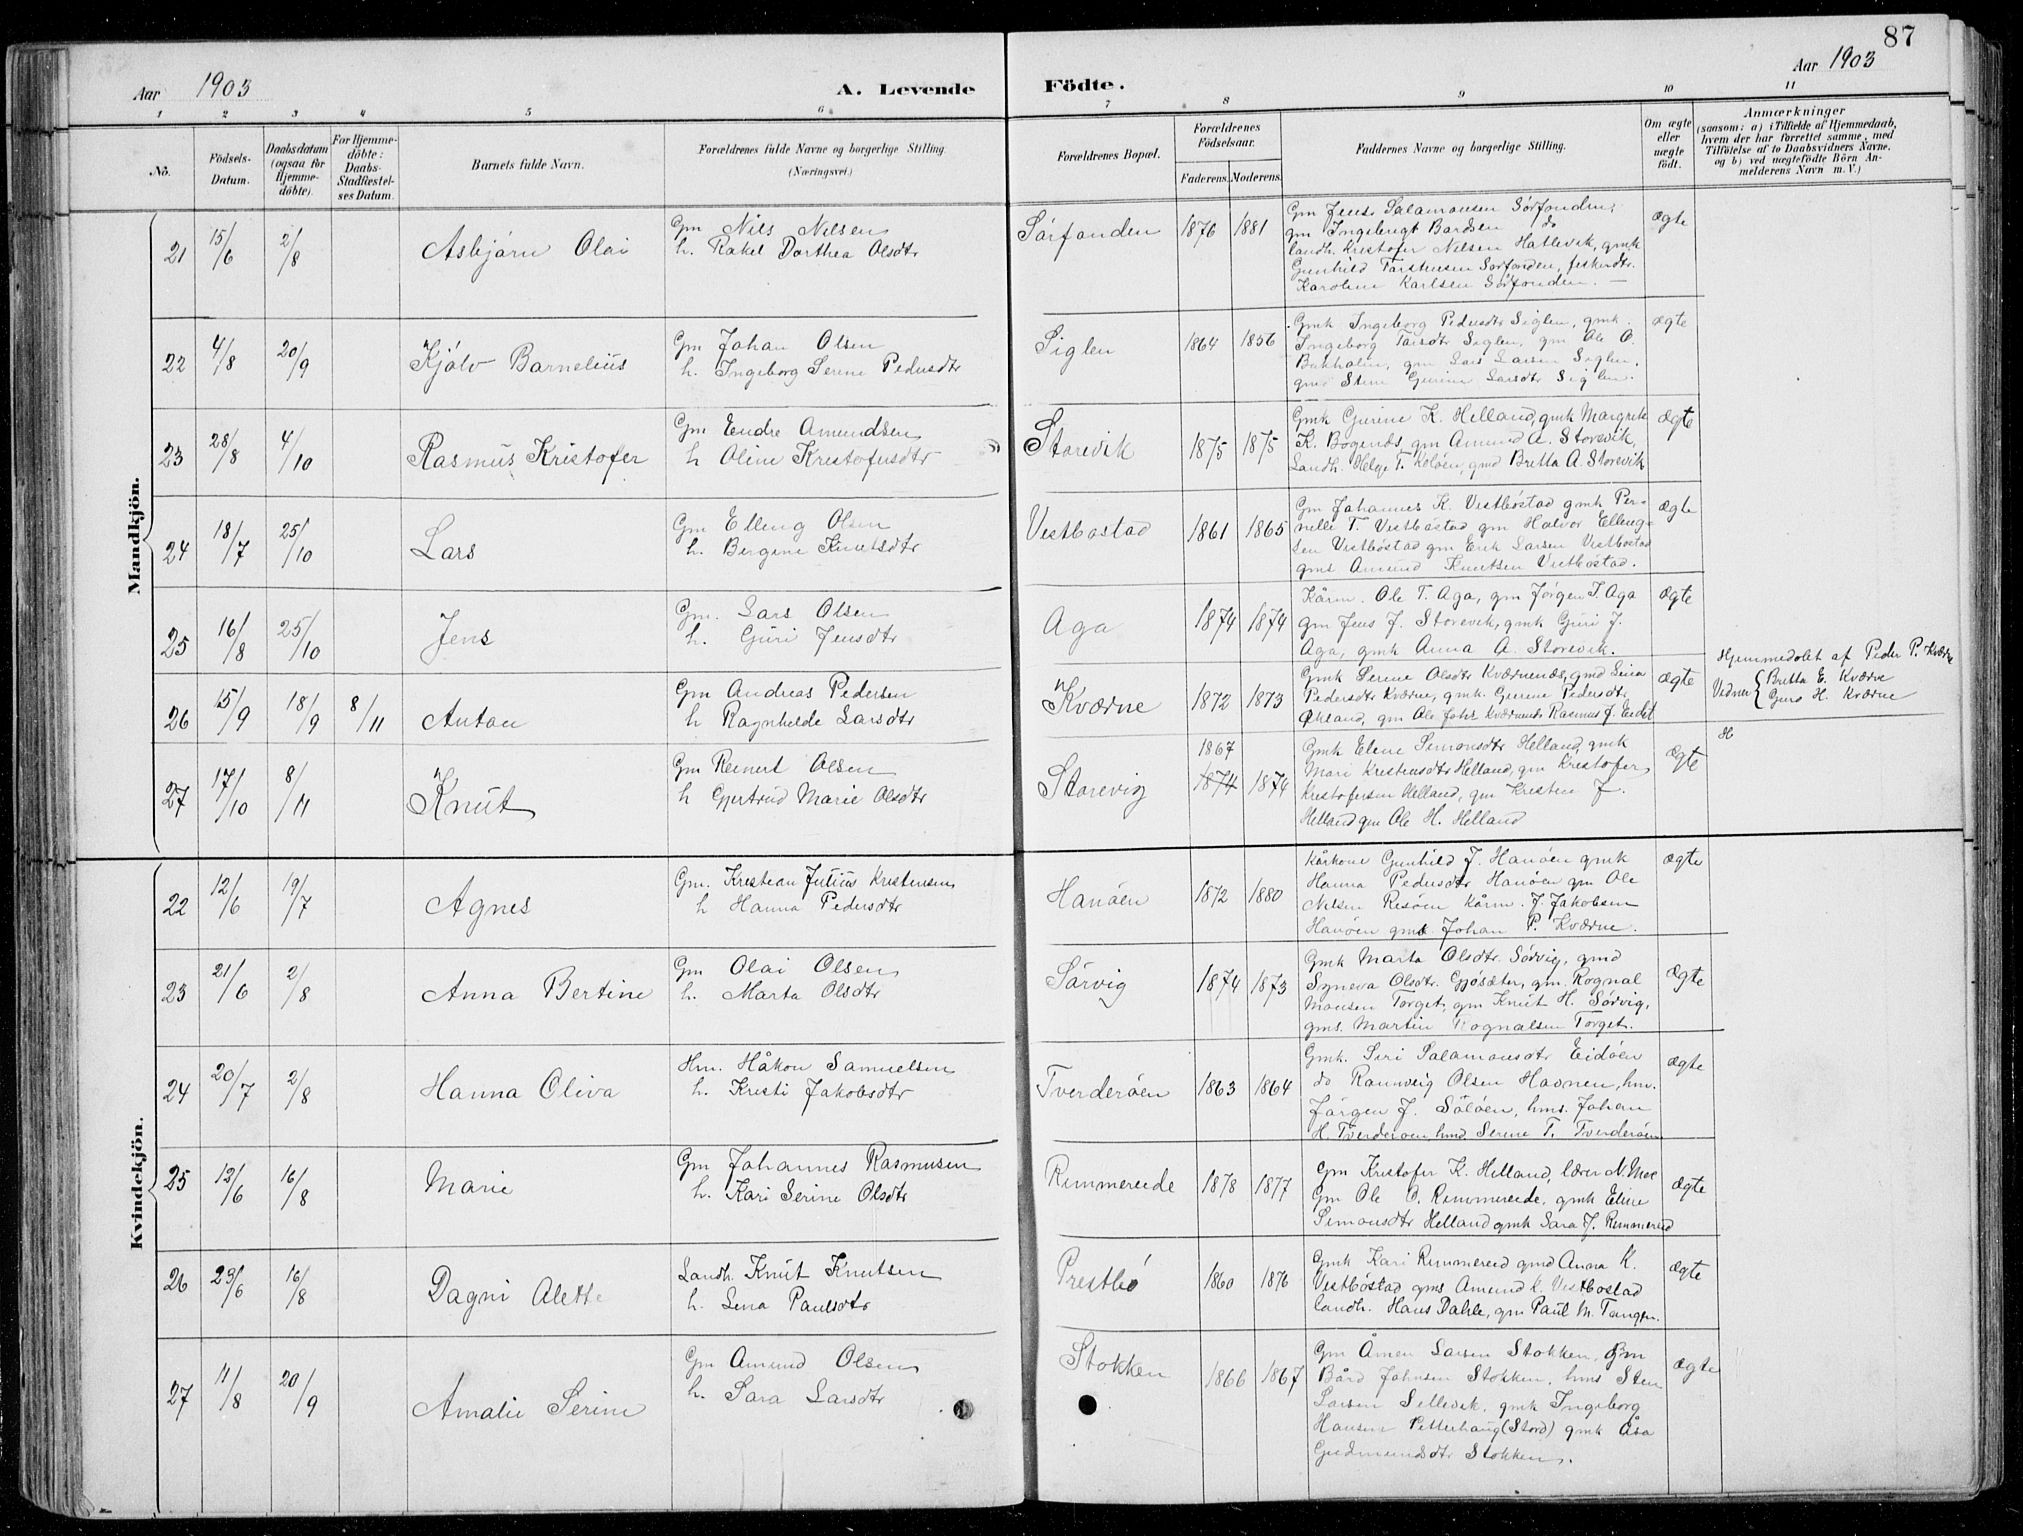 87
Aar 1903
A. Levende Födte.
Aar 1903
1 2 3 4 5 6 7 8 9 10 11
No.
Födsels-
Datum.
Daabsdatum
(ogsaa for
Hjemme-
döbte).
For Hjemme-
döbte:
Daabs-
Stadfæstel-
ses Datum.
Barnets fulde Navn.
Forældrenes fulde Navne og borgerlige Stilling.
(Næringsvei.)
Forældrenes Bopæl.
Forældrenes
Födselsaar.
Faderens. Moderens.
Faddernes Navne og borgerlige Stilling.
Om ægte
eller
uægte
födt.
Anmærkninger
(saasom: a) i Tilfælde af Hjemmedaab,
hvem der har forrettet samme, med
Tilföielse af to Daabsvidners Navne,
og b) ved uægtefödte Börn An-
melderens Navn m. V.)
Mandkjön.
21 15/6 2/8 Asbjørn Olai
Gm Nils Nilsen
h. Rakel Dorthea Olsdtr
Sørfonden 1876 1881
Gm Jens Salamonsen Sørfonden,
gm Ingebrigt Bardsen do
landh. Kristofer Nilsen Hatlevik, gmk
Gunhild Torstensen Sørfonden, fiskerdtr.
Karoline Karlsen Sørfonden. —
ægte
22 4/8 20/9 Kjølv Barnelius
Gm Johan Olsen
h. Ingeborg Serene Pedersdtr
Siglen 1864 1856
Gmk Ingeborg Pedersdtr Siglen, gmk.
Ingeborg Larsdtr Siglen, gm Ole O.
Bakhalen, gm Lars Larsen Siglen.
gms Stene Gurine Larsdtr Siglen.
ægte
23 28/8 4/10 Rasmus Kristofer
Gm Endre Amundsen
h Oline Kristofersdtr
Storevik 1875 1875
Gmk Gurine K. Helland, gmk Margrete
K. Bøgenæs, gm Amund A. Storevik,
Landh. Helge T. Koløen, gmd Bretta A. Storevik
ægte
24 18/7 25/10 Lars
Gm Elling Olsen
h. Bergine Knutsdtr
Vestbøstad 1861 1865
Gm Johannes K. Vestbøstad gmk Per-
nelle T. Vestbøstad gm Halvor Elling-
sen Vestbøstad gm Erik Larsen Vestbøstad
gms Amund Knutsen Vestbøstad.
ægte
25 16/8 25/10 Jens
Gm. Lars Olsen
h. Guri Jensdtr
Aga 1874 1874
Kårm. Ole T. Aga, gm Jørgen T. Aga
gm Jens J. Storevik, gmk Guri J.
Aga, gmk Anna A. Storevik.
ægte
26 15/9 18/9 8/11 Anton
Gm Andreas Pedersen
h Ragnhilde Larsdtr
Kværne 1872 1873
Gmk Serene Olsdtr Kværnenæs, gmd Sena
Pedersdtr Kværne, gmk. Gurene Pedersdtr
Økland, gm Ole Johs Kværnenes Rasmus J. Eidet
ægte
Hjemmedøbt af Peder P. Kværne
Vidner { Britta E. Kværne
Guro H. Kværne
27 17/10 8/11 Knut
Gm Reinert Olsen
h Gjertrud Marie Olsdtr
Storevig 1867 1874 1874
Gmk Elene Simonsdtr Helland, gmk
Mari Kristensdtr Helland, gm Kristofer
Kristofersen Helland, gm Kristen J.
Helland gm Ole H. Helland
ægte
H
Kvindekjön.
22 12/6 19/7 Agnes
Gm. Kristian Julius Kristensen
h Hanna Pedersdtr
Hanøen 1872 1880
Kårkone Gunhild J. Hanøen gmk
Hanna Pedersdtr Hanøen gm Ole
Nilsen Resøen kårm. J. Jakobsen
Hanøen gms Johan P. Kværne.
ægte
23 21/6 2/8 Anna Bertine
Gm Olai Olsen
h. Marta Olsdtr
Sørvig 1874 1873
Gmk Marta Olsdtr. Sørvig, gmd
Syneva Olsdtr. Gjøsæter, gm. Rognal
Monsen Torget, gm Knut H. Sørvig,
gms. Martin Rognalsen Torget.
ægte
24 20/7 2/8 Hanna Oliva
Hm. Håkon Samuelsen
h. Kristi Jakobsdtr
Tverderøen 1863 1864
Gmk. Siri Salamonsdtr Eidøen
do Rannveig Olsen Havnen, hm.
Jørgen J. Søløen, hms. Johan
H. Tverderøen, hmd Serine T. Tverderøen
ægte
25 12/6 16/8 Marie
Gm Johannes Rasmusen
h. Kari Serine Olsdtr
Rimmereide 1878 1877
Gm Kristofer K. Helland, lærer N. Moe
Gm Ole O. Rimmereide, gmk Eline
Simonsdtr Helland gmk Sara J. Rimmereid
ægte
26 23/6 16/8 Dagni Alette
Landh. Knut Knutsen
h. Lena Paulsdtr
Prestbø 1860 1876
Gmk Kari Rimmereid gmd Anna K.
Vestbøstad gms Amund K. Vestbøstad
landh. Hans Dahle, gm Paul M. Tangen.
ægte
27 11/8 20/9 Amalie Serine
Gm Amund Olsen
h. Sara Larsdtr
Stokken 1866 1867
Gm Åmen Larsen Stokken, Gm
Bård Johnsen Stokken, hms Sten
Larsen Sellevik, gmk Ingeborg
Hansen Petterhaug (Stord) gmk Åsa
Gudmundsdtr Stokken.
ægte